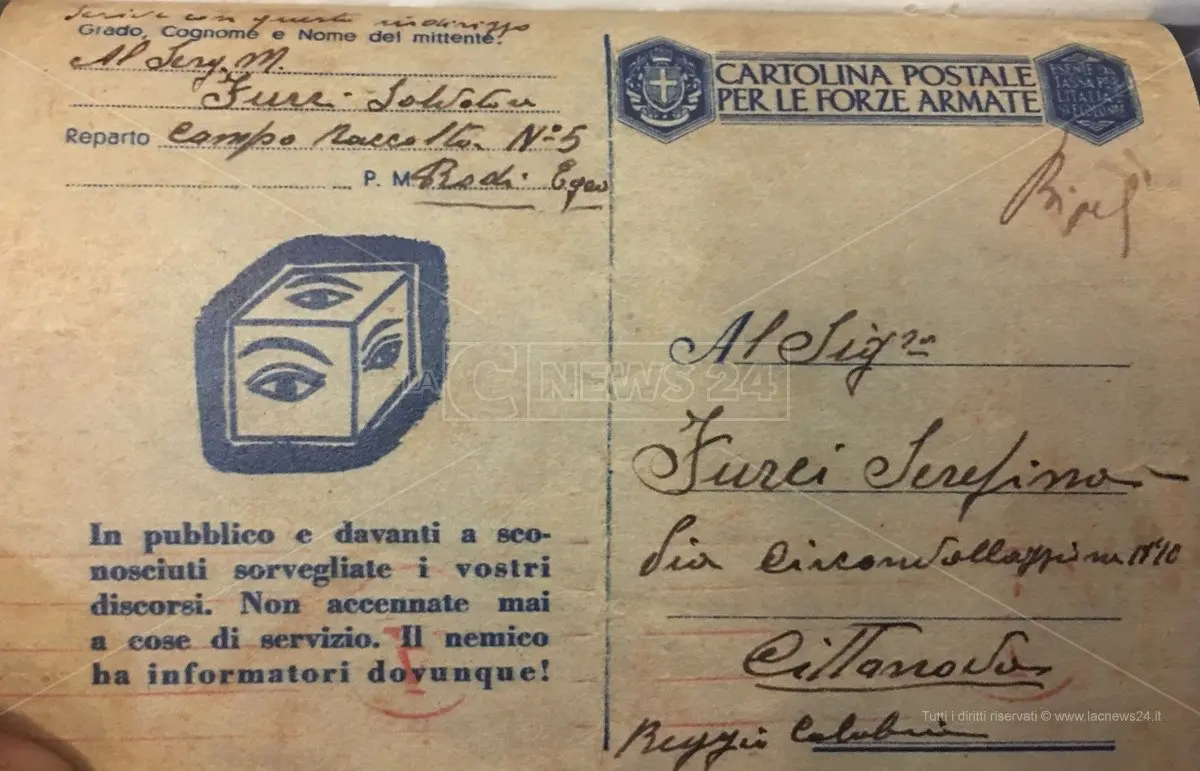 Scrive con questo indirizzo
Grado, Cognome e Nome del mittente:
Al Serg. M.
Furci Salvatore
Reparto Campo Raccolta N° 5
P. M. Rodi Egeo
In pubblico e davanti a sco-
nosciuti sorvegliate i vostri
discorsi. Non accennate mai
a cose di servizio. Il nemico
ha informatori dovunque!
CARTOLINA POSTALE
PER LE FORZE ARMATE
Al Sigra
Furci Serafina
Via Circonvallazione N° 10
Cittanova
Reggio Calabria
LA C NEWS 24
Tutti i diritti riservati © www.lacnews24.it